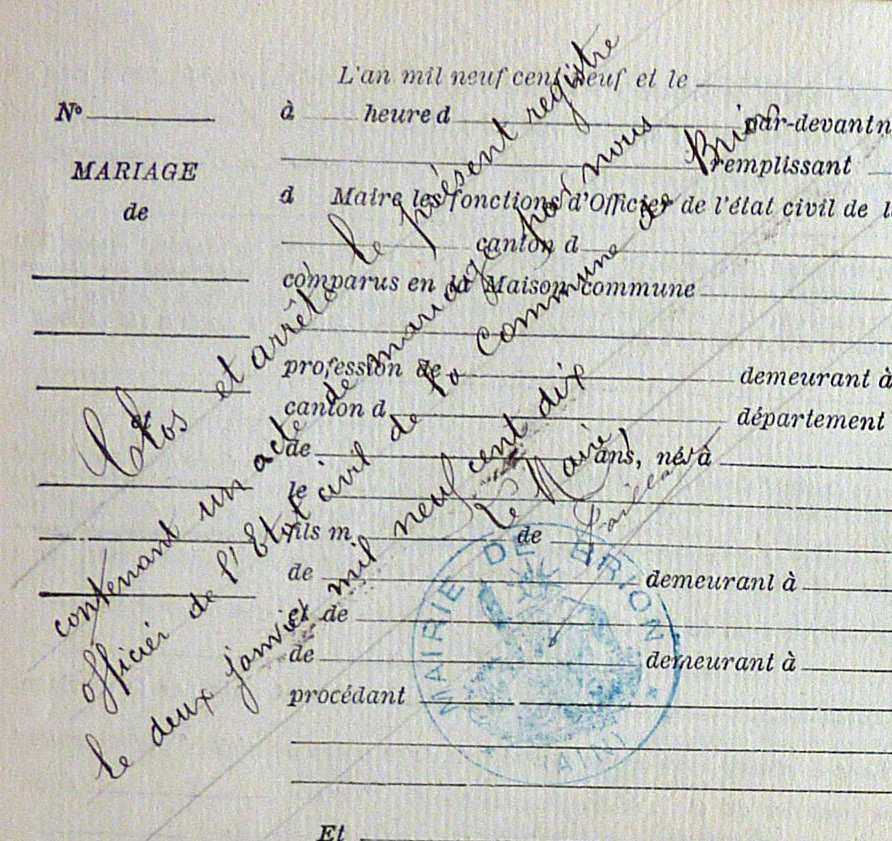 L'an mil neuf cent neuf et le
No
à heure d par-devant n
MARIAGE
de
remplissant
d Maire les fonctions d'Officier de l'état civil de l
canton d
comparus en la Maison commune
profession de demeurant à
canton d département
de ans, né à
le
fils m de
de demeurant à
et de
de demeurant à
procédant
Et
Clos et arrêté le présent registre
contenant un acte de mariage par nous
officier de l'Etat civil de la Commune de Brion
le deux janvier mil neuf cent dix
Le Maire
MAIRIE DE BRION
(AIN)